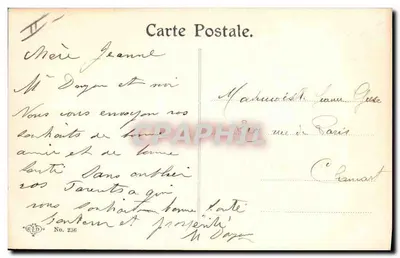 Carte Postale.
Chère Jeanne
Mr Doyen et moi
Nous vous envoyons nos
souhaits de bonne
année et de bonne
santé sans oublier
vos Parents a qui
nous souhaitons bonne santé
bonheur et prospérité
M Doyen
Mademoiselle Jeanne
rue de Paris
Clamart
ELD
No. 236